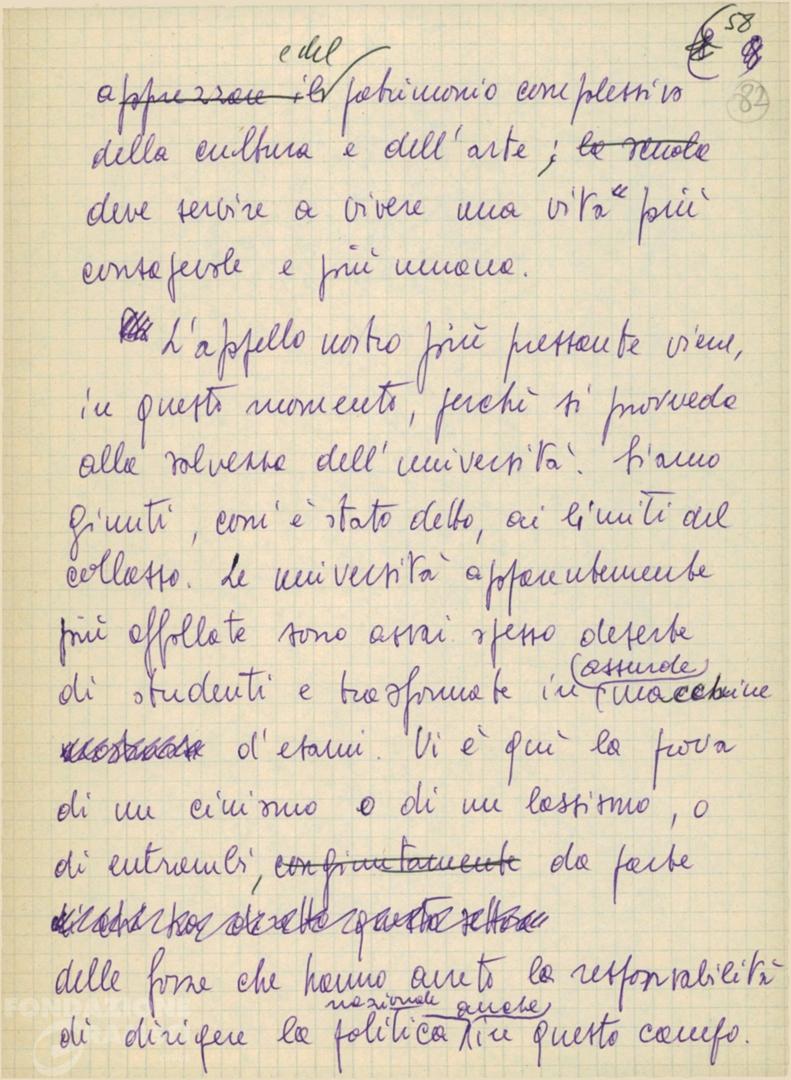 58
82
e del
apprezzare il patrimonio complessivo
della cultura e dell'arte; la scuola
deve servire a vivere una vita più
consapevole e più umana.
L'appello nostro più pressante viene,
in questo momento, perchè si provveda
alla salvezza dell'università. Siamo
giunti, com'è stato detto, ai limiti del
collasso. Le università apparentemente
più affollate sono assai spesso deserte
(assurde)
di studenti e trasformate in macchine
d'esami. Vi è quì la prova
di un cinismo o di un lassismo, o
di entrambi, congiuntamente da parte
delle forze che hanno avuto la responsabilità
nazionale anche
di dirigere la politica in questo campo.
FONDAZIONE